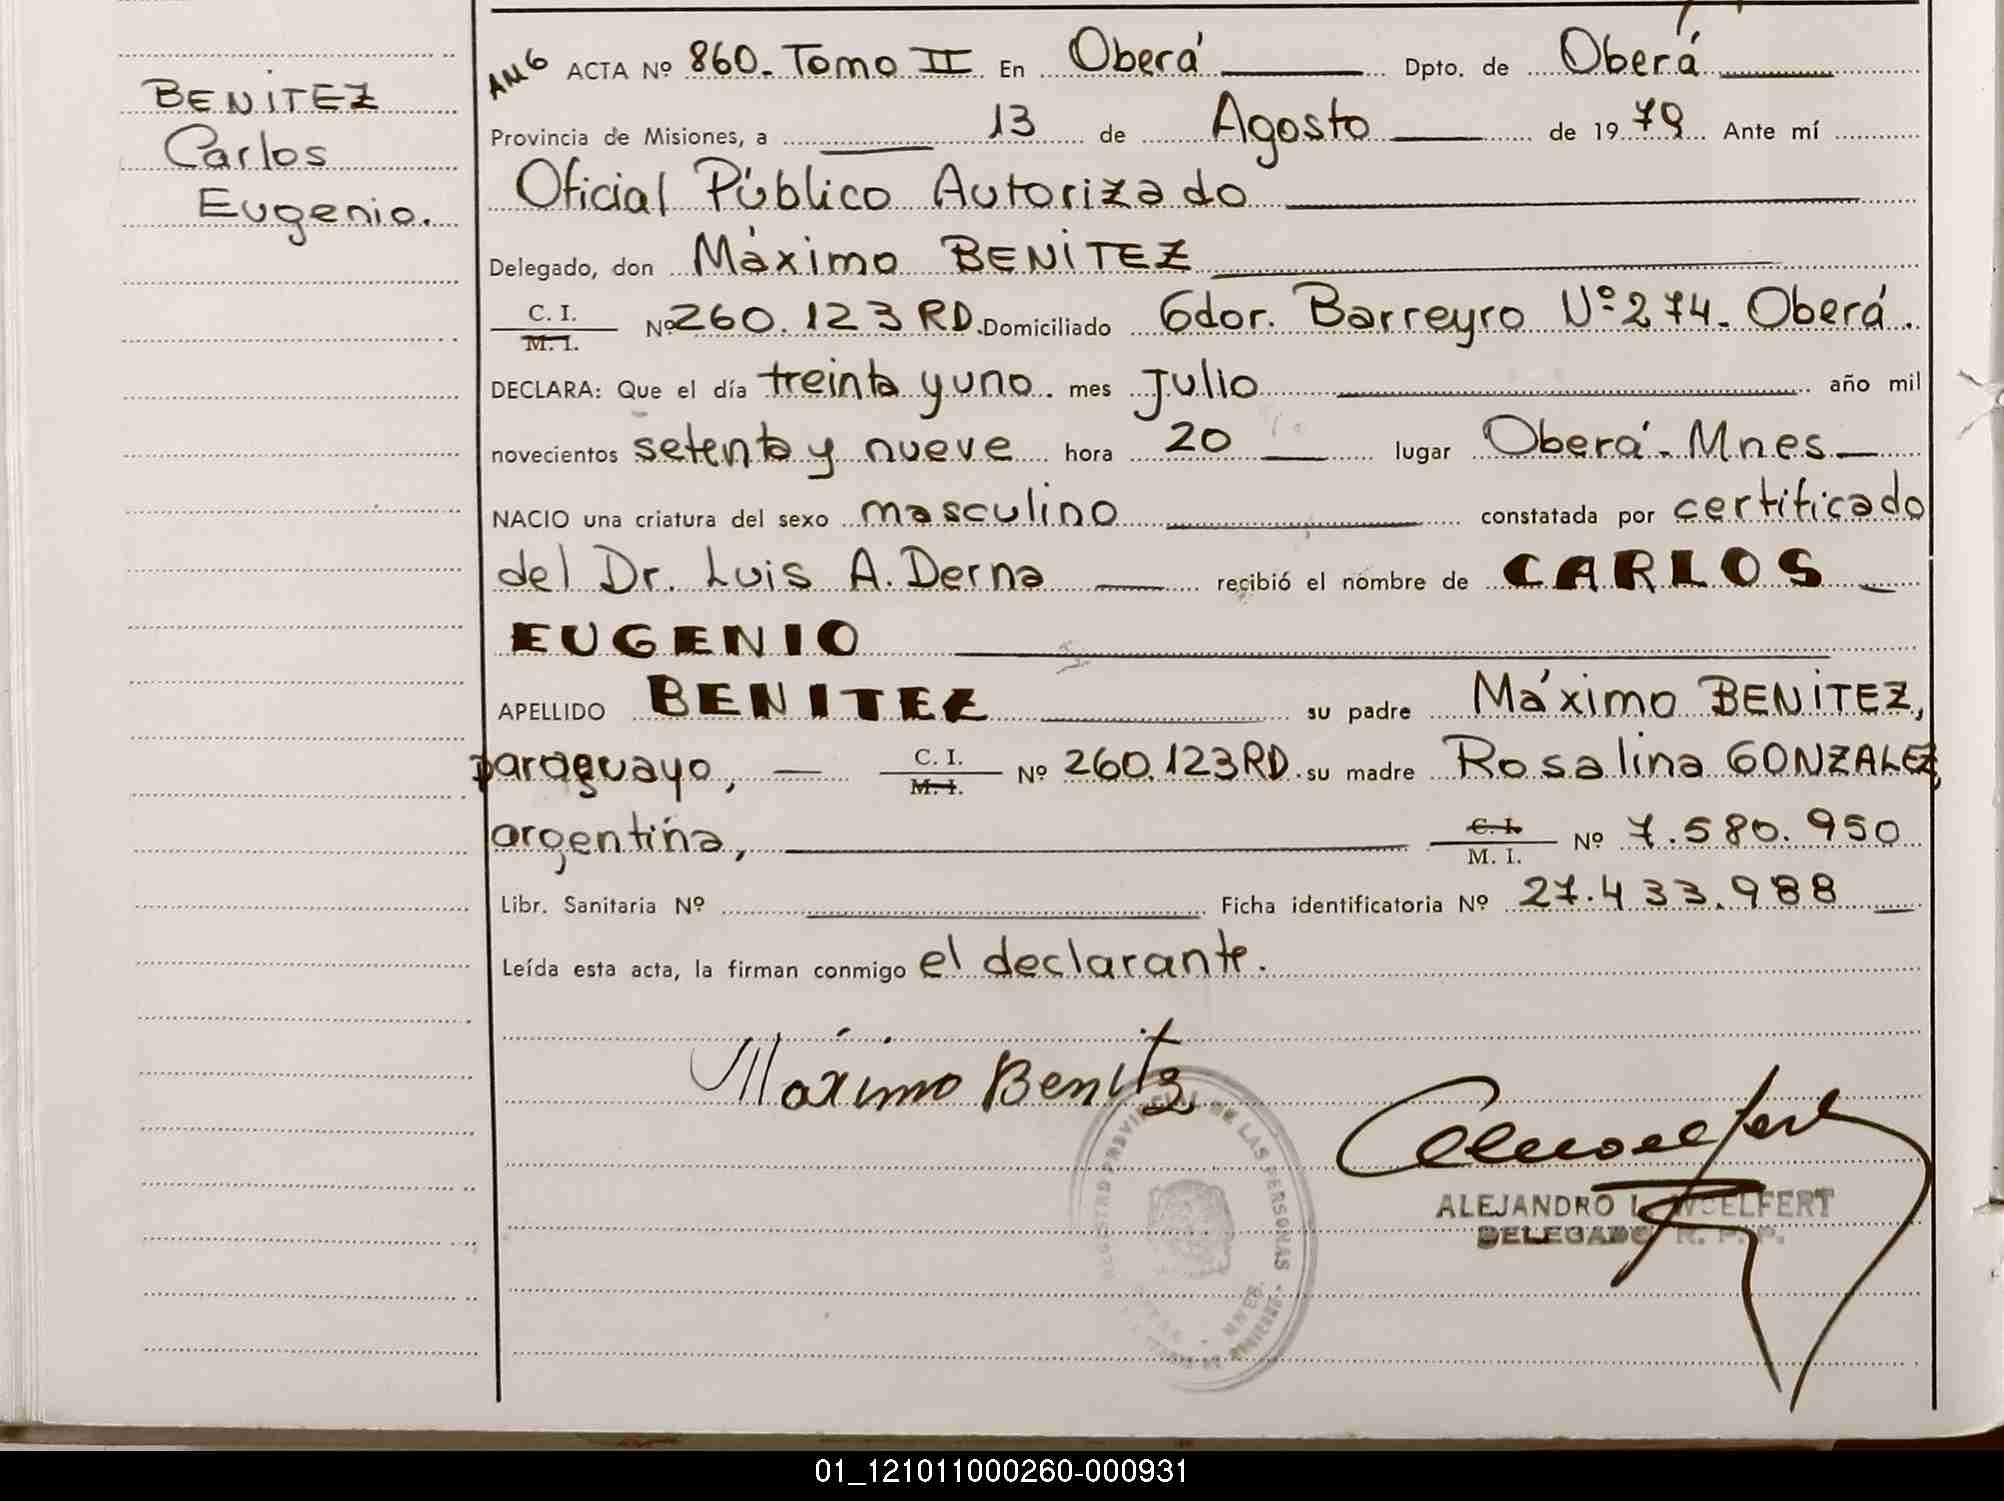 BENITEZ
Carlos
Eugenio.
AMG ACTA Nº 860. Tomo II En Oberá Dpto. de Oberá
Provincia de Misiones, a 13 de Agosto de 1979 Ante mí
Oficial Público Autorizado
Delegado, don Máximo BENITEZ
C. I.
M. I. Nº 260.123 RD. Domiciliado Gdor. Barreyro Nº 274. Oberá.
DECLARA: Que el día treinta y uno. mes Julio año mil
novecientos setenta y nueve hora 20 lugar Oberá. Mnes.
NACIO una criatura del sexo masculino constatada por certificado
del Dr. Luis A. Derna recibió el nombre de CARLOS
EUGENIO
APELLIDO BENITEZ su padre Máximo BENITEZ,
paraguayo, C. I. M. I. Nº 260.123RD. su madre Rosalina GONZALEZ,
argentina, C. I. M. I. Nº 7.580.950
Libr. Sanitaria Nº Ficha identificatoria Nº 27.433.988
Leída esta acta, la firman conmigo el declarante.
Máximo Benitez
REGISTRO PROVINCIAL DE LAS PERSONAS
ALEJANDRO L. WOELFERT
DELEGADO R. P. P.
01_121011000260-000931